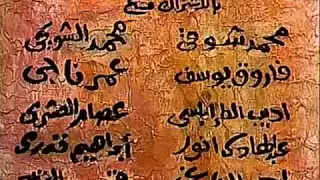 بالاشتراك مع
محمد شوقى محمد الشويحى
فاروق يوسف عمر ناجى
اديب الطرابلسى عصام القشيرى
عبدالهادى انور ابراهيم قدرى